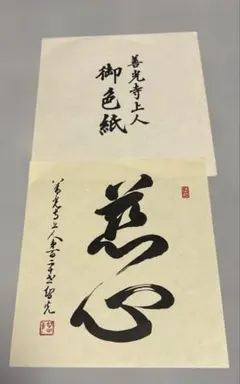 善光寺上人
御色紙
慈心
善光寺上人